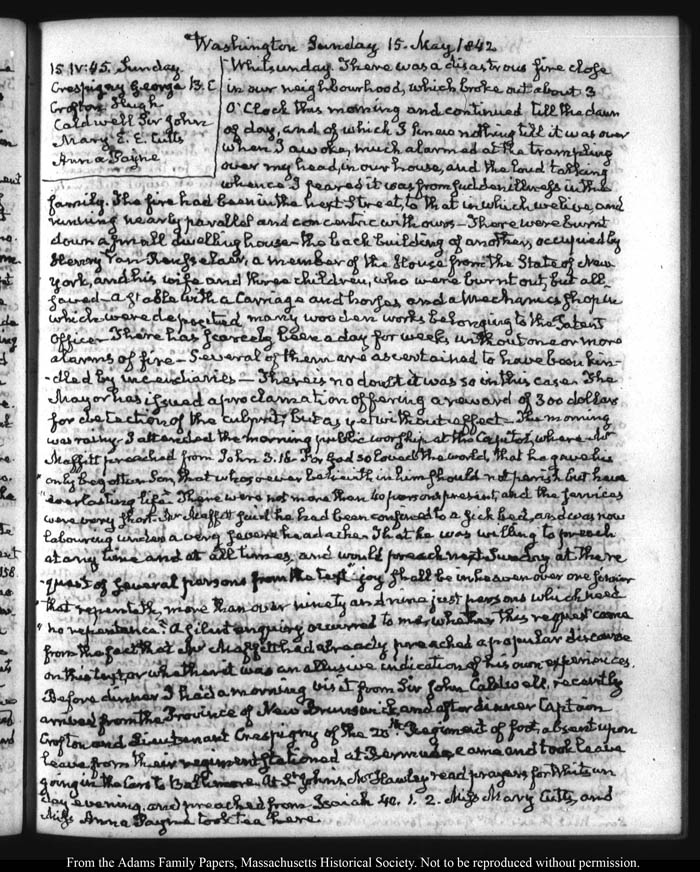 Washington Sunday 15. May 1842
15. IV:45. Sunday
Crespigny George B. C
Crofton Hugh
Caldwell Sir John
Mary E. E. Cutts
Anna Payne
Whitsunday. There was a disastrous fire close
in our neighbourhood, which broke out about 3
O'Clock this morning and continued till the dawn
of day, and of which I knew nothing till it was over
when I awoke, much alarmed at the trampling
over my head, in our house, and the loud talking
whence I feared it was from sudden illness in the
family. The fire had been in the next Street, to that in which we live, and
running nearly parallel and concentric with ours—There were burnt
down a small dwelling house—the back building of another, occupied by
Henry Van Rensselaer, a member of the House from the State of New
York, and his wife and three children, who were burnt out, but all
saved—a stable with a Carriage and horses and a Mechanics shop in
which were deposited many wooden works belonging to the Patent
Office. There has scarcely been a day for weeks without one or more
alarms of fire—Several of them are ascertained to have been kin-
-dled by incendiaries—There is no doubt it was so in this case. The
Mayor has issued a proclamation offering a reward of 300 dollars
for detection of the culprit, but as yet without effect—The morning
was rainy. I attended the morning public worship at the Capitol, where Mr
Maffitt preached from John 3.16. For God so loved the world, that he gave his
" only begotten Son, that whosoever believeth in him should not perish but have
" everlasting life". There were not more than 40 persons present, and the services
were very short. Mr Maffitt said he had been confined to a sick bed, and was now
labouring under a very severe headache. That he was willing to preach
at any time and at all times, and would preach next Sunday at the re
-quest of several persons from the text "joy shall be in heaven over one sinner
" that repenteth, more than over ninety and nine just persons which need
" no repentance". A silent enquiry occurred to me whether this request came
from the fact that Mr Maffitt had already preached a popular discourse
on this text or whether it was an allusive indication of his own experiences.
Before dinner I had a morning visit from Sir John Caldwell, recently
arrived from the Province of New Brunswick and after dinner Captain
Crofton and Lieutenant Crespigny of the 20th Regiment of foot, absent upon
leave from their regiment stationed at Bermuda, came and took leave
going in the Cars to Baltimore. At St John's, Mr Hawley read prayers for Whitsun
day evening, and preached from Isaiah 40. 1. 2. Miss Mary Cutts, and
Miss Anna Payne took tea here.
From the Adams Family Papers, Massachusetts Historical Society. Not to be reproduced without permission.